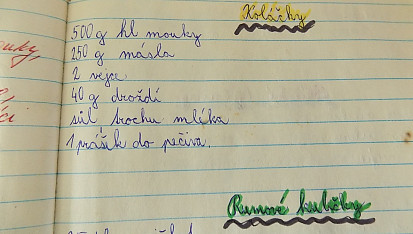 Koláčky
500 g hl mouky
250 g másla
2 vejce
40 g droždí
sůl trochu mlíka
1 prášek do pečiva.
Rumové kuličky